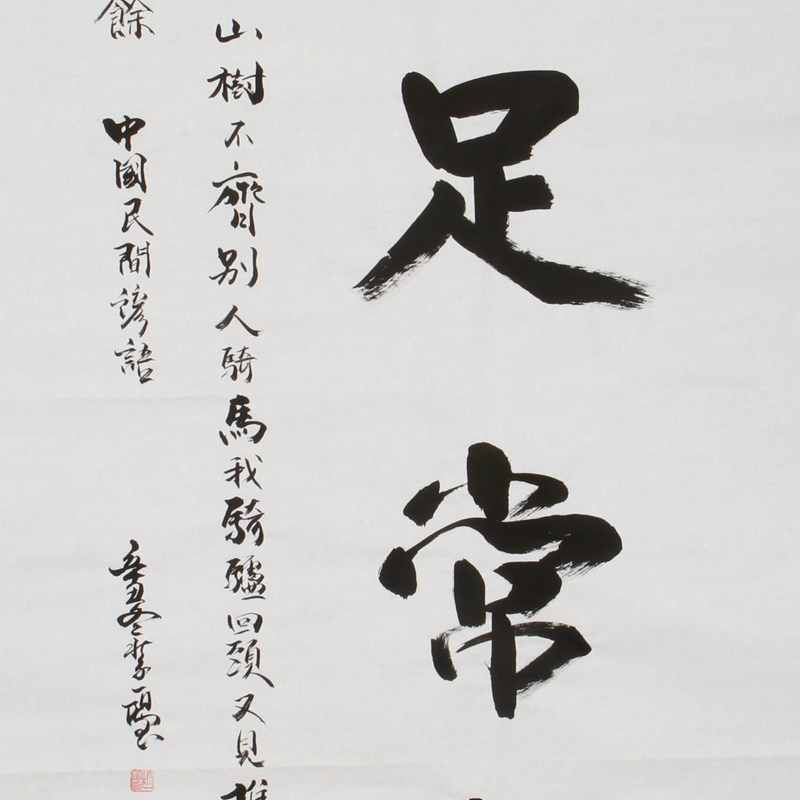 足常
山樹不齊別人騎馬我騎驢回頭又見推
餘 中國民間諺語 辛丑冬李